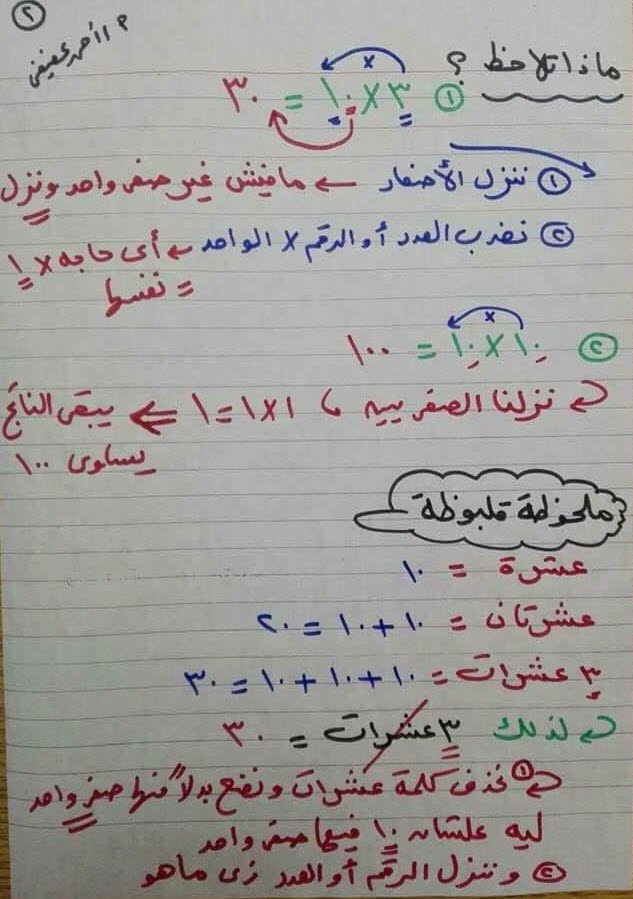 ٢
أ/أحمد عفيفي
ماذا تلاحظ ؟
① ٣ × ١٠ = ٣٠
×
① ننزل الأصفار ← مافيش غير صفر واحد وننزل
② نضرب العدد أو الرقم × الواحد ← أى حاجه × ١
= نفسها
② ١٠ × ١٠ = ١٠٠
×
نزلنا الصفريين ، ١ × ١ = ١ ⇐ يبقى الناتج
يساوى ١٠٠
ملحوظة قلبوظة
عشرة = ١٠
عشرتان = ١٠ + ١٠ = ٢٠
٣ عشرات = ١٠ + ١٠ + ١٠ = ٣٠
لذلك ٣ عشرات = ٣٠
① نحذف كلمة عشرات ونضع بدلاً منها صفر واحد
ليه علشان ١٠ فيها صفر واحد
② وننزل الرقم أو العدد زى ماهو